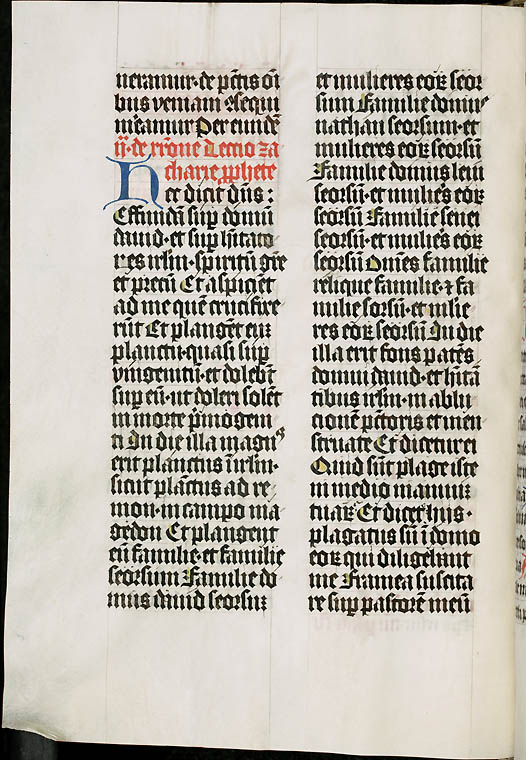 neramur·de pctīs oī
bus veniam ⁊sequi
mēamur Per eundē
ij·de xr̄one Lectio za
charie ꝓphete
Hec dicit dn̄s :
Effundā sup̄ domū
dauid·et sup̄ hītato
res irlm̄·spiritū grē
et precū Et aspiciēt
ad me quē crucifixe
rūt Et plangēt eūꝫ
planctu·quasi sup̄
vnigenitū·et dolebūt
sup̄ eū·ut doleri solēt
in morte p̄mogeni
ti In die illa magnꝰ
erit planctus ī irlm̄·
sicut plāctus ad re
mon·in campo ma
gedon Et plangent
eū familie·et familie
seorsum Familie do
mus dauid seorsuꝫ
et mulieres eoꝝ seor
sum Familie domuꝰ
nathan seorsum·et
mulieres eoꝝ seorsū
Familie domus leui
seorsū·et mulīes eoꝝ
seorsū Familie semei
seorsū·et mulīes eoꝝ
seorsū Omēs familie
relique familie ⁊ fa
milie sorsū·et mlie
res eoꝝ seorsū In die
illa erit fons patēs
domui dauid·et hītā
tibus irlm̄·in ablu
cionē pctōris et men
struate Et dicetur ei
Quid sūt plage iste
in medio manuuꝫ
tuaꝝ Et dicet hijs·
plagatus sū ī domo
eoꝝ qui diligebant
me Framea suscita
re sup̄ pastorē meū